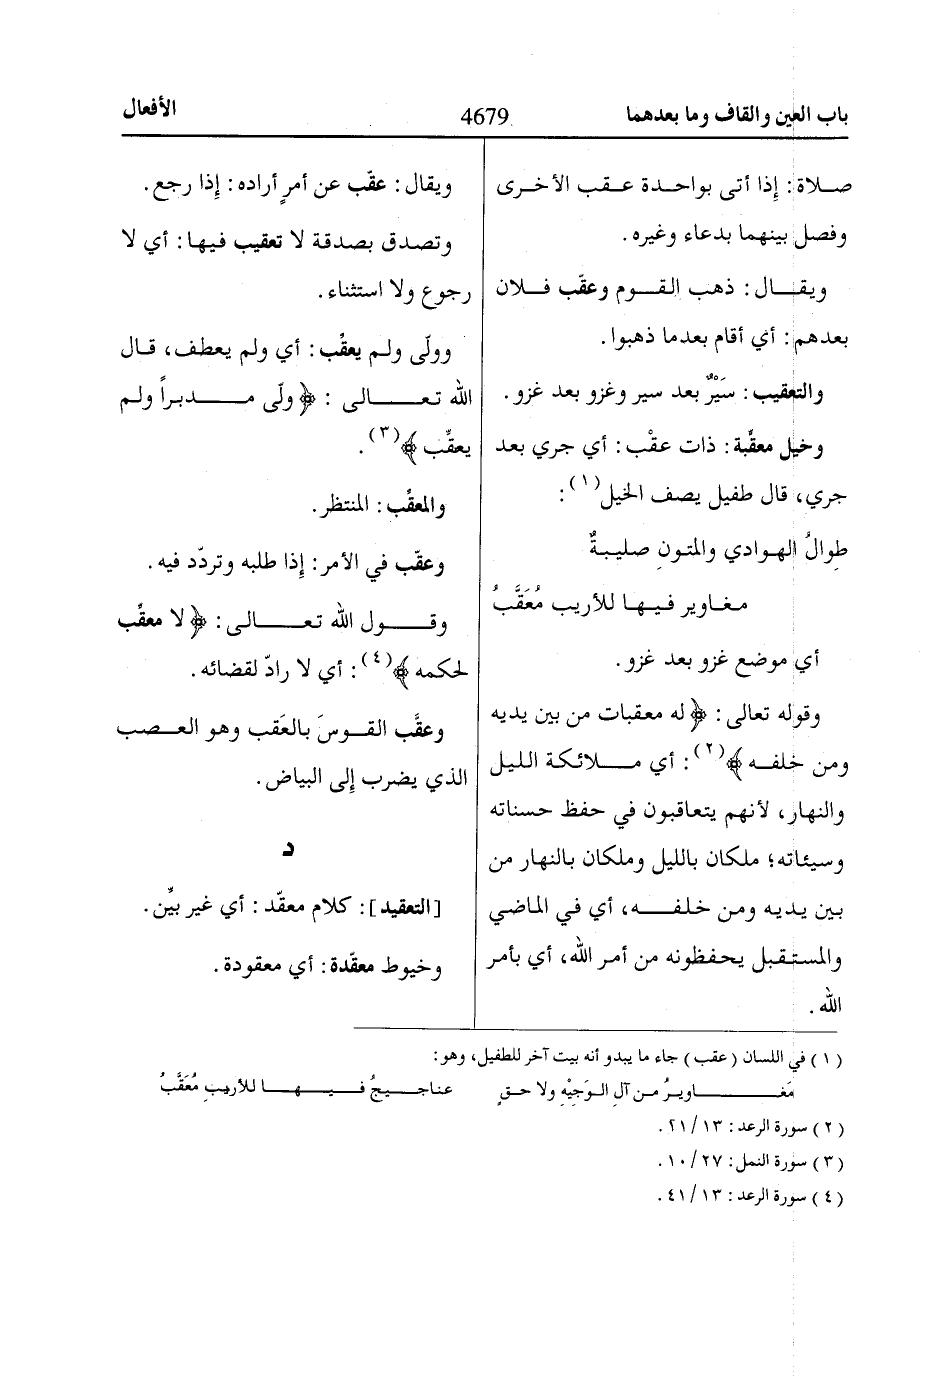 باب العين والقاف وما بعدهما
4679
الأفعال
صلاة: إذا أتى بواحدة عقب الأخرى
وفصل بينهما بدعاء وغيره.
ويقال: ذهب القوم وعقّب فلان
بعدهم: أي أقام بعدما ذهبوا.
والتعقيب: سَيْرٌ بعد سير وغزو بعد غزو.
وخيل معقِّبة: ذات عقْب: أي جري بعد
جري، قال طفيل يصف الخيل(١):
طوالُ الهوادي والمتونِ صليبةٌ
مغاوير فيها للأريب مُعَقَّبُ
أي موضع غزو بعد غزو.
وقوله تعالى: ﴿له معقبات من بين يديه
ومن خلفه﴾(٢): أي ملائكة الليل
والنهار، لأنهم يتعاقبون في حفظ حسناته
وسيئاته؛ ملكان بالليل وملكان بالنهار من
بين يديه ومن خلفه، أي في الماضي
والمستقبل يحفظونه من أمر الله، أي بأمر
الله.
ويقال: عقّب عن أمرٍ أراده: إذا رجع.
وتصدق بصدقة لا تعقيب فيها: أي لا
رجوع ولا استثناء.
وولّى ولم يعقِّب: أي ولم يعطف، قال
الله تعالى: ﴿ولّى مدبراً ولم
يعقِّب﴾(٣).
والمعقِّب: المنتظر.
وعقّب في الأمر: إذا طلبه وتردّد فيه.
وقول الله تعالى: ﴿لا معقِّب
لحكمه﴾(٤): أي لا رادّ لقضائه.
وعقَّب القوسَ بالعَقب وهو العصب
الذي يضرب إلى البياض.
د
[التعقيد]: كلام معقّد: أي غير بيِّن.
وخيوط معقّدة: أي معقودة.
(١) في اللسان (عقب) جاء ما يبدو أنه بيت آخر للطفيل، وهو:
مَغاويرُ من آلِ الوَجيْهِ ولا حقٍ عناجيجُ فيها للأريب مُعَقَّبُ
(٢) سورة الرعد: ١٣/ ٢١.
(٣) سورة النمل: ٢٧/ ١٠.
(٤) سورة الرعد: ١٣/ ٤١.